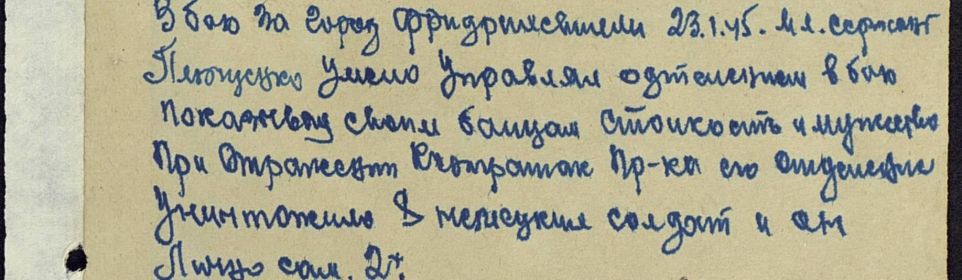 В бою за город Фридрихсвилли 23.1.45. мл. сержант
Плющенко умело управлял отделением в бою
показывая своим бойцам стойкость и мужество
При отражении контратак пр-ка его отделение
уничтожило 8 немецких солдат и он
Лично сам. 2х.